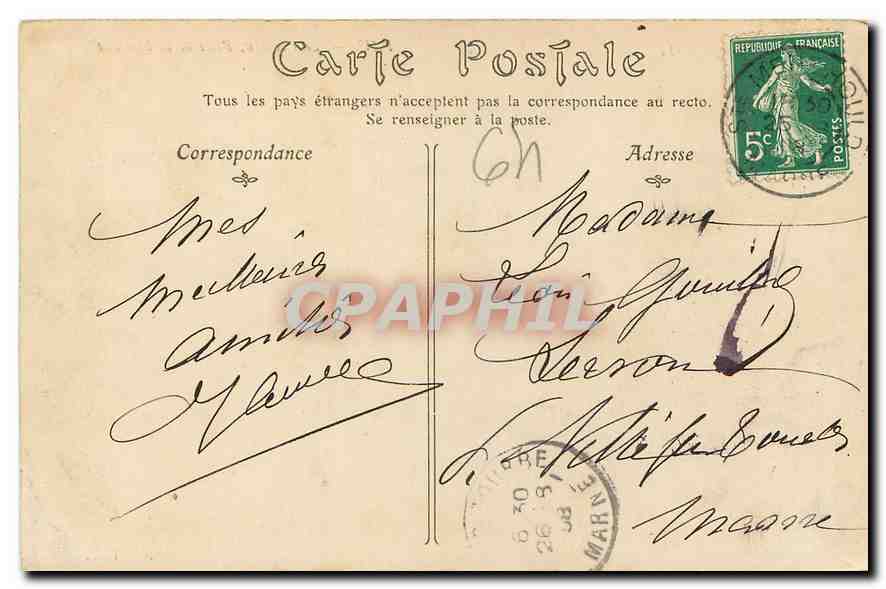 Carte Postale
Tous les pays étrangers n'acceptent pas la correspondance au recto.
Se renseigner à la poste.
Correspondance
Adresse
6h
REPUBLIQUE FRANÇAISE
5c
POSTES
Mes
Meilleures
amitiés
Madame
Léon
Ville sur Tourbe
Marne
CPAPHIL
TOURBE
6 30
26 -8
08
MARNE